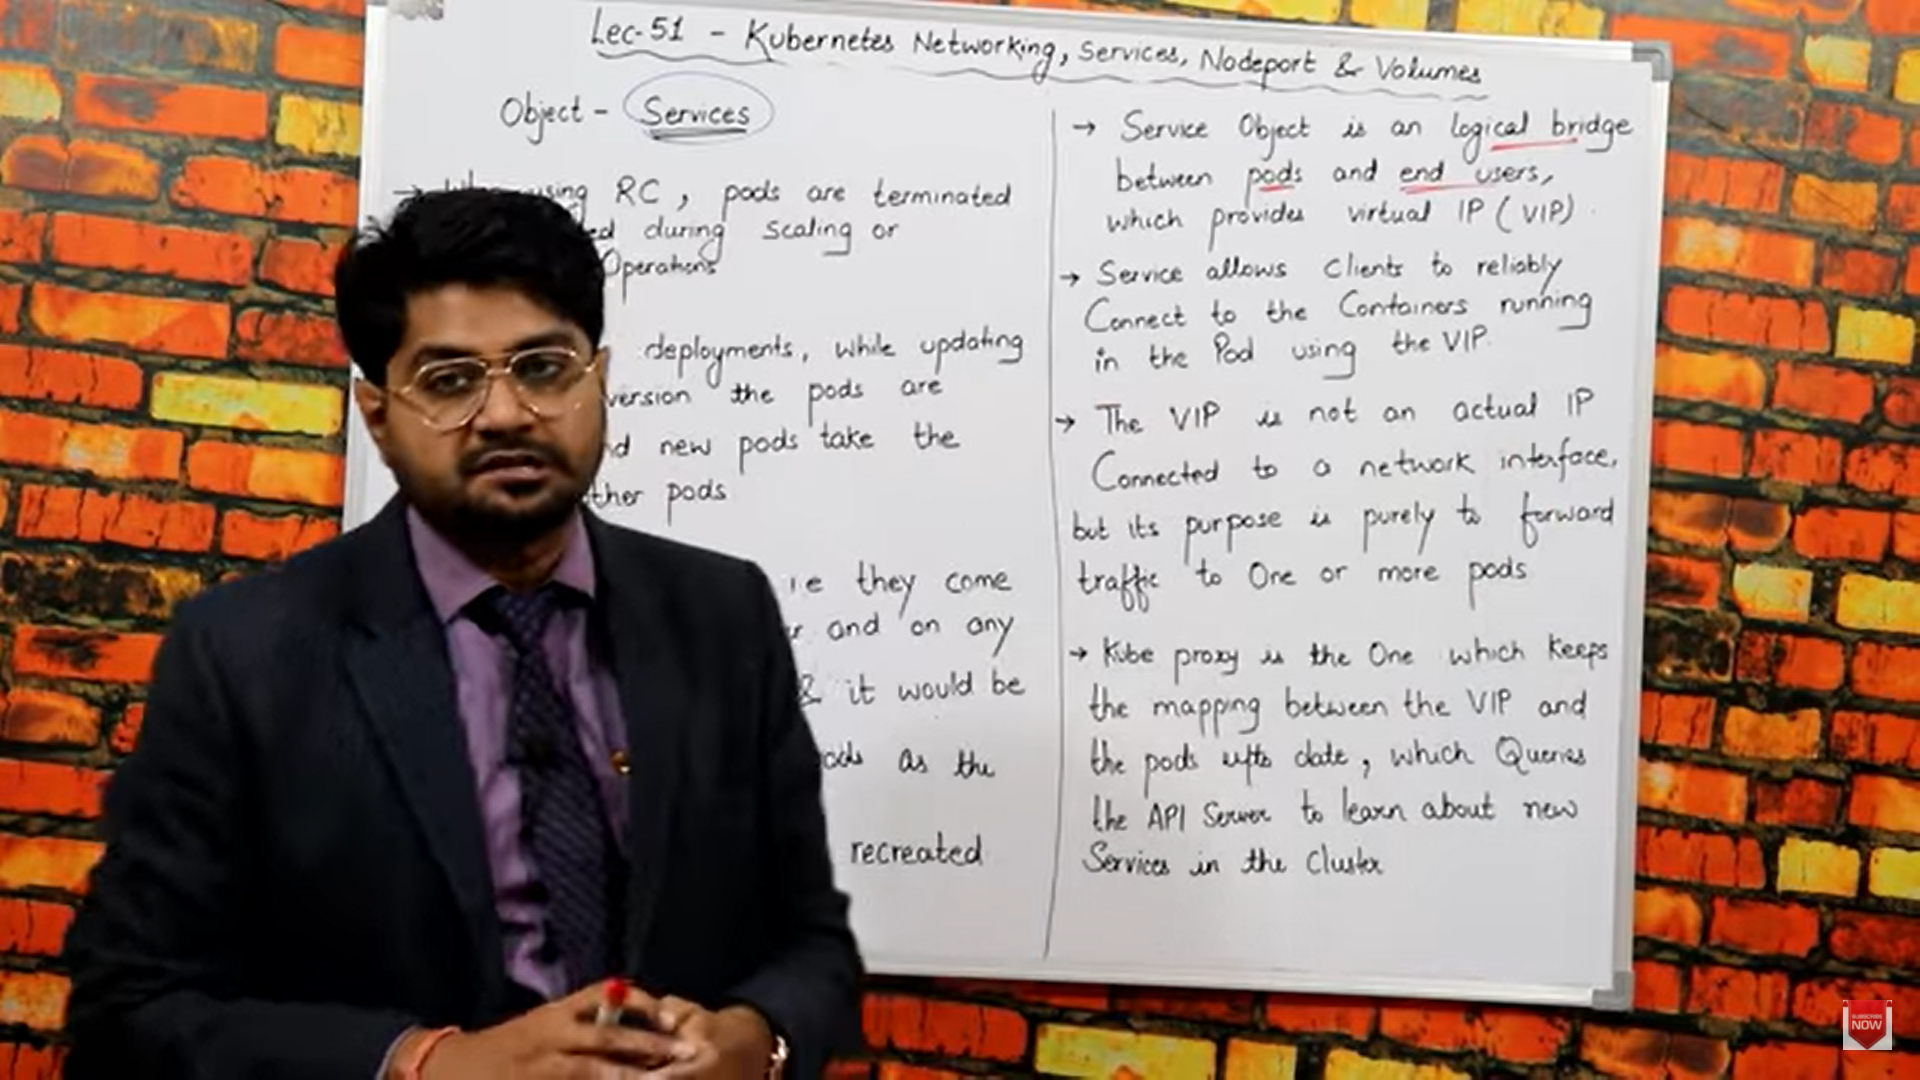 Lec-51 - Kubernetes Networking, Services, Nodeport & Volumes
Object - Services
using RC, pods are terminated
ed during scaling or
Operations
deployments, while updating
version the pods are
nd new pods take the
ther pods
i.e they come
r and on any
& it would be
ods as the
recreated
→ Service Object is an logical bridge
between pods and end users,
which provides virtual IP (VIP).
→ Service allows Clients to reliably
Connect to the Containers running
in the Pod using the VIP.
→ The VIP is not an actual IP
Connected to a network interface,
but its purpose is purely to forward
traffic to One or more pods
→ Kube proxy is the One which Keeps
the mapping between the VIP and
the pods upto date, which Queries
the API Server to learn about new
Services in the Cluster
SUBSCRIBE
NOW